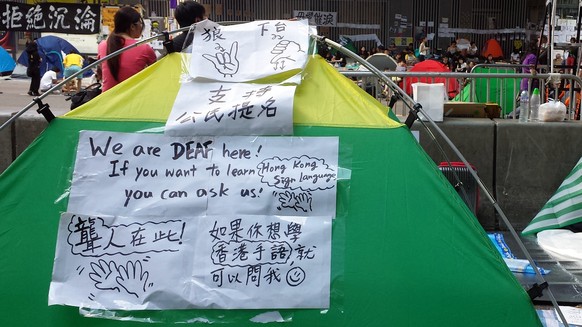 拒絕沉淪
狼 下台
支持
公民提名
We are DEAF here!
If you want to learn Hong Kong Sign language
you can ask us!
聾人在此!
如果你想學
香港手語,就
可以問我